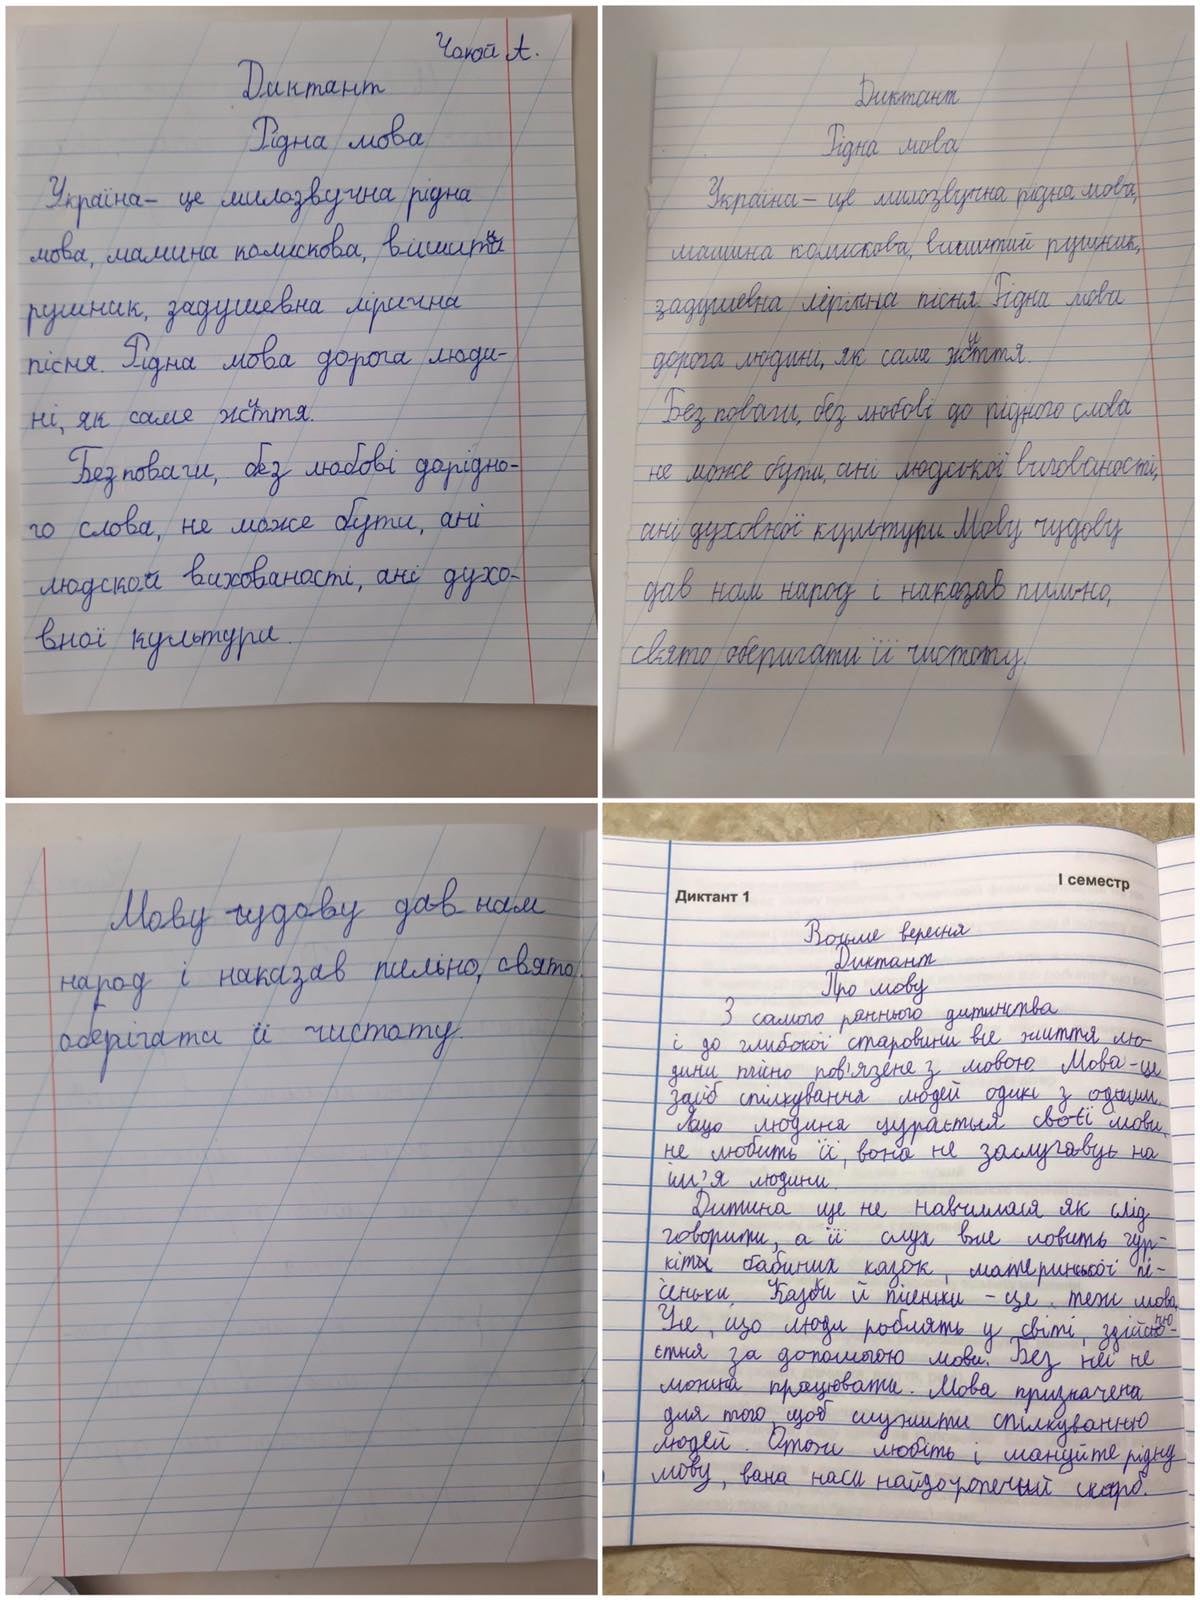 Чакой А.
Диктант
Рідна мова
Україна – це милозвучна рідна
мова, мамина колискова, вишитий
рушник, задушевна лірична
пісня. Рідна мова дорога люди-
ні, як саме життя.
Без поваги, без любові дорідно-
го слова, не може бути, ані
людской вихованості, ані духо-
вної культури.
Диктант
Рідна мова
Україна – це милозвучна рідна мова,
машина колискова, вишитий рушник,
задушевна лірична пісня. Рідна мова
дорога людини, як саме життя.
Без поваги, без любові до рідного слова
не може бути, ані людської вихованості,
ані духовної культури. Мову чудову
дав нам народ і наказав пильно,
свято оберигати її чистоту.
Мову чудову дав нам
народ і наказав пильно, свято
оберігати її чистоту.
Диктант 1
І семестр
Восьме вересня
Диктант
Про мову
З самого раннього дитинства
і до глибокої старовини все життя лю-
дини тісно пов'язене з мовою. Мова – це
засіб спілкування людей одикі з одним.
Якщо людина цурається своєї мови,
не любить її, вона не заслуговує на
ім'я людини.
Дитина ще не навчилася як слід
говорити, а її слух вже ловить гур-
кіти бабиних казок, материнської пі-
сеньки. Казки й пісеньки – це теж мова.
Усе, що люди роблять у світі, здійсню-
ється за допомогою мови. Без неї не
можна працювати. Мова призначена
для того, щоб служити спілкуванню
людей. Отож любіть і шануйте рідну
мову, вана наси найдорожчий скарб.